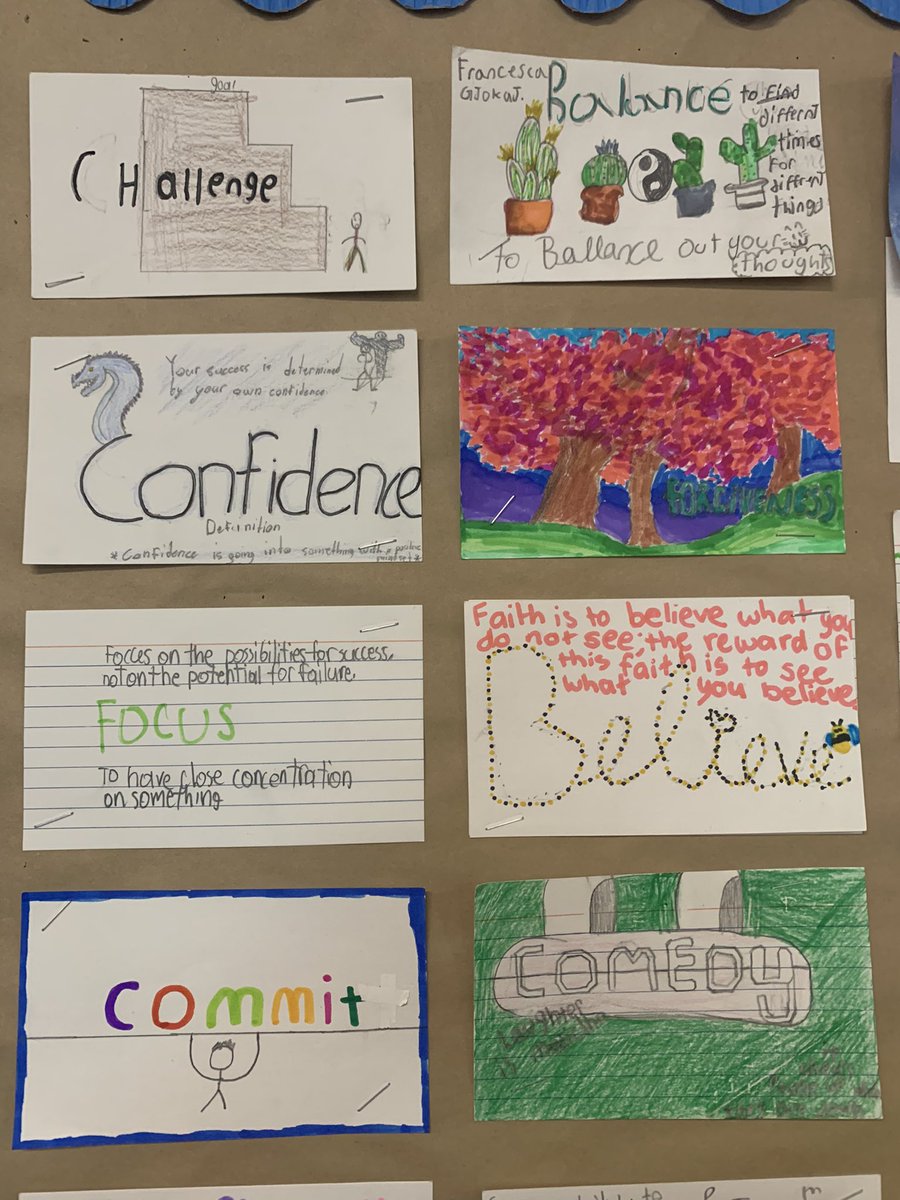 goal
CHallenge
Francesca
GJOKAJ.
Balance
to Find
different
times
For
diffrent
things
To Ballance out your
Thoughts
Your success is determined
by your own confidence
Confidence
Definition
*Confidence is going into something with a positive
mindset*
FORGIVENESS
Focus on the possibilities for success,
not on the potential for failure
FOCUS
To have close concentration
on something
Faith is to believe what you
do not see; the reward of
this faith is to see
what you believe
Believe
Commit
COMEDY
Laughter
is